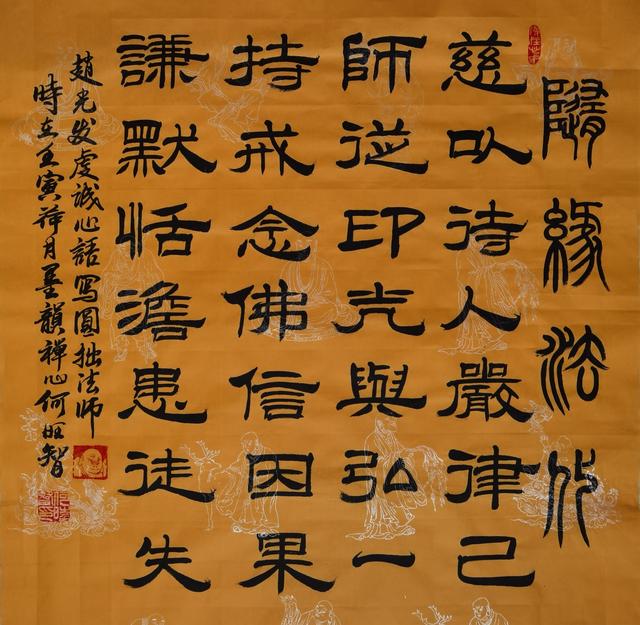 隨緣法行
慈以待人嚴律己
師從印光與弘一
持戒念佛信因果
謙默恬澹患徒失
趙光發虔誠心語寫圓拙法師
時在壬寅荷月墨韻禪心何旺智